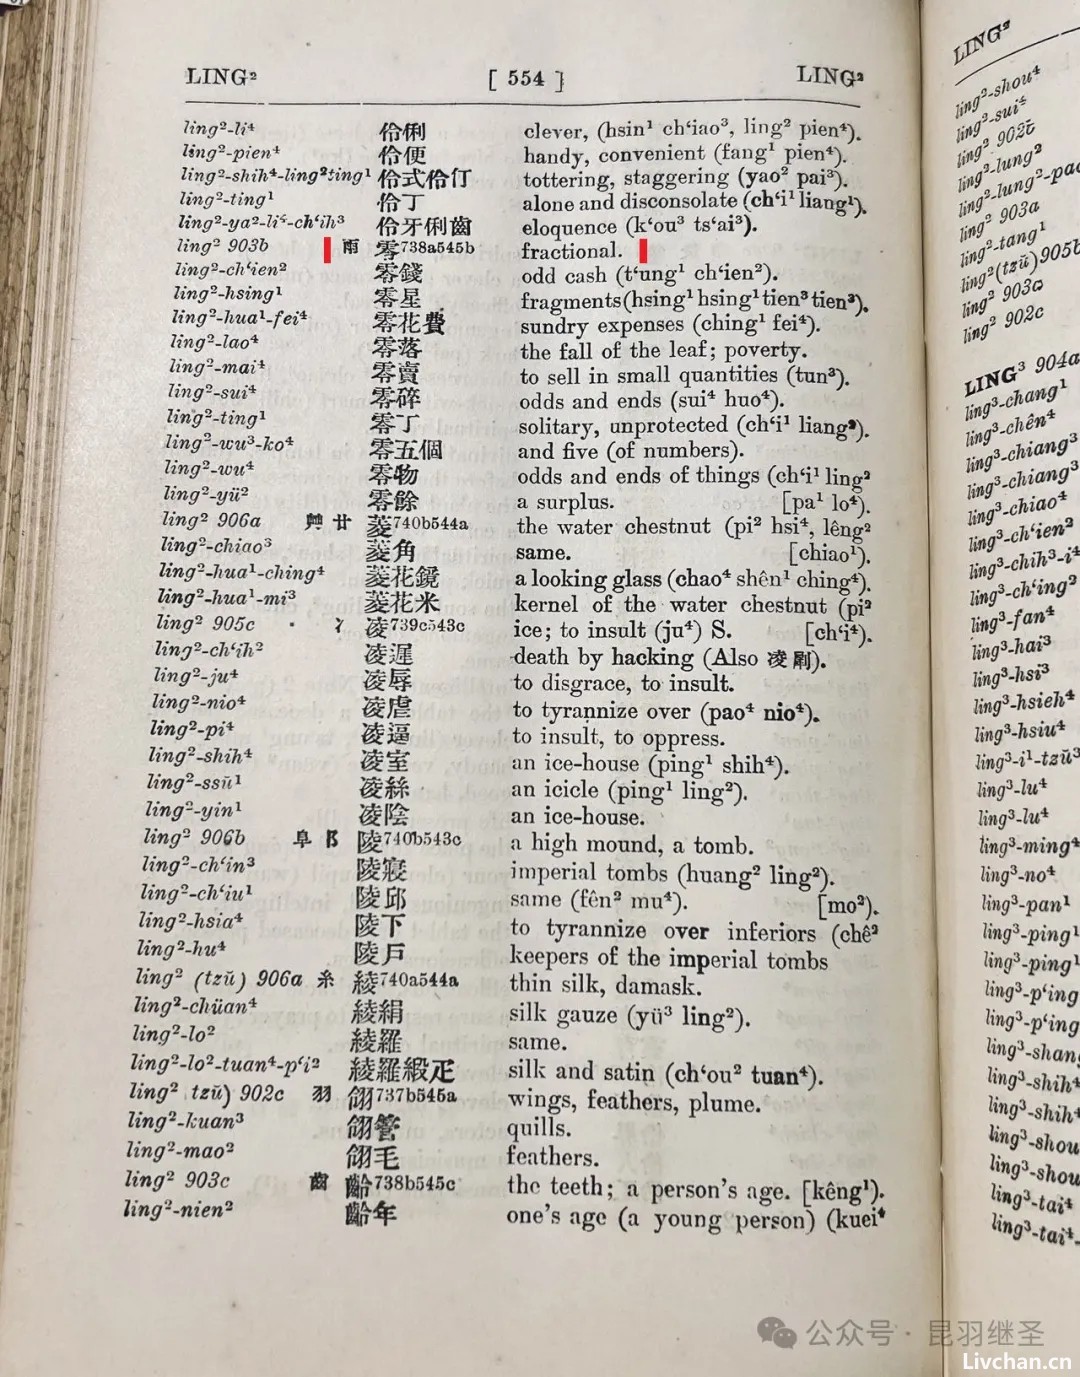 LING² [ 554 ] LING²
ling²-li⁴ 伶俐 clever, (hsin¹ ch‘iao³, ling² pien⁴).
ling²-pien⁴ 伶便 handy, convenient (fang¹ pien⁴).
ling²-shih⁴-ling²ting¹ 伶式伶仃 tottering, staggering (yao² pai³).
ling²-ting¹ 伶丁 alone and disconsolate (ch‘i¹ liang¹).
ling²-ya²-li⁴-ch‘ih³ 伶牙俐齒 eloquence (k‘ou³ ts‘ai³).
ling² 903b 雨 零738a545b fractional.
ling²-ch‘ien² 零錢 odd cash (t‘ung¹ ch‘ien²).
ling²-hsing¹ 零星 fragments(hsing¹ hsing¹ tien³ tien³).
ling²-hua¹-fei⁴ 零花費 sundry expenses (ching¹ fei⁴).
ling²-lao⁴ 零落 the fall of the leaf; poverty.
ling²-mai⁴ 零賣 to sell in small quantities (tun³).
ling²-sui⁴ 零碎 odds and ends (sui⁴ huo⁴).
ling²-ting¹ 零丁 solitary, unprotected (ch‘i¹ liang²).
ling²-wu³-ko⁴ 零五個 and five (of numbers).
ling²-wu⁴ 零物 odds and ends of things (ch‘i¹ ling²
ling²-yü² 零餘 a surplus. [pa¹ lo⁴).
ling² 906a 艸 廿 菱740b544a the water chestnut (pi² hsi⁴, lêng²
ling²-chiao³ 菱角 same. [chiao¹).
ling²-hua¹-ching⁴ 菱花鏡 a looking glass (chao⁴ shên¹ ching⁴).
ling²-hua¹-mi³ 菱花米 kernel of the water chestnut (pi²
ling² 905c 冫 凌739c543c ice; to insult (ju⁴) S. [ch‘i⁴).
ling²-ch‘ih² 凌遲 death by hacking (Also 凌剮).
ling²-ju⁴ 凌辱 to disgrace, to insult.
ling²-nio⁴ 凌虐 to tyrannize over (pao⁴ nio⁴).
ling²-pi⁴ 凌逼 to insult, to oppress.
ling²-shih⁴ 凌室 an ice-house (ping¹ shih⁴).
ling²-ssŭ¹ 凌絲 an icicle (ping¹ ling²).
ling²-yin¹ 凌陰 an ice-house.
ling² 906b 阜 阝 陵740b543c a high mound, a tomb.
ling²-ch‘in³ 陵寢 imperial tombs (huang² ling²).
ling²-ch‘iu¹ 陵邱 same (fên² mu⁴). [mo²).
ling²-hsia⁴ 陵下 to tyrannize over inferiors (chê²
ling²-hu⁴ 陵戶 keepers of the imperial tombs
ling² (tzŭ) 906a 糸 綾740a544a thin silk, damask.
ling²-chüan⁴ 綾絹 silk gauze (yü³ ling²).
ling²-lo² 綾羅 same.
ling²-lo²-tuan⁴-p‘i² 綾羅緞疋 silk and satin (ch‘ou² tuan⁴).
ling² tzŭ) 902c 羽 翎737b545a wings, feathers, plume.
ling²-kuan³ 翎管 quills.
ling²-mao² 翎毛 feathers.
ling² 903c 齒 齡738b545c the teeth; a person's age. [kêng¹).
ling²-nien² 齡年 one's age (a young person) (kuei⁴
LING²
ling²-shou⁴
ling²-sui⁴
ling² 902b
ling²-lung²
ling² 903a
ling²-tang¹
ling² (tzŭ) 905b
ling² 903a
ling² 902c
LING³ 904a
ling³-chang¹
ling³-chên⁴
ling³-chiang³
ling³-chiang³
ling³-chiao⁴
ling³-ch‘ien²
ling³-chih³-i⁴
ling³-ch‘ing²
ling³-fan⁴
ling³-hai³
ling³-hsi³
ling³-hsieh⁴
ling³-hsiu⁴
ling³-i¹-tzŭ³
ling³-lu⁴
ling³-lu⁴
ling³-ming⁴
ling³-no⁴
ling³-pan¹
ling³-ping¹
ling³-ping¹
ling³-p‘ing
ling³-p‘ing
ling³-shang
ling³-shih⁴
ling³-shih⁴
ling³-shou
ling³-shou
ling³-tai⁴
ling³-tai⁴-
公众号 · 昆羽继圣
Livchan.cn